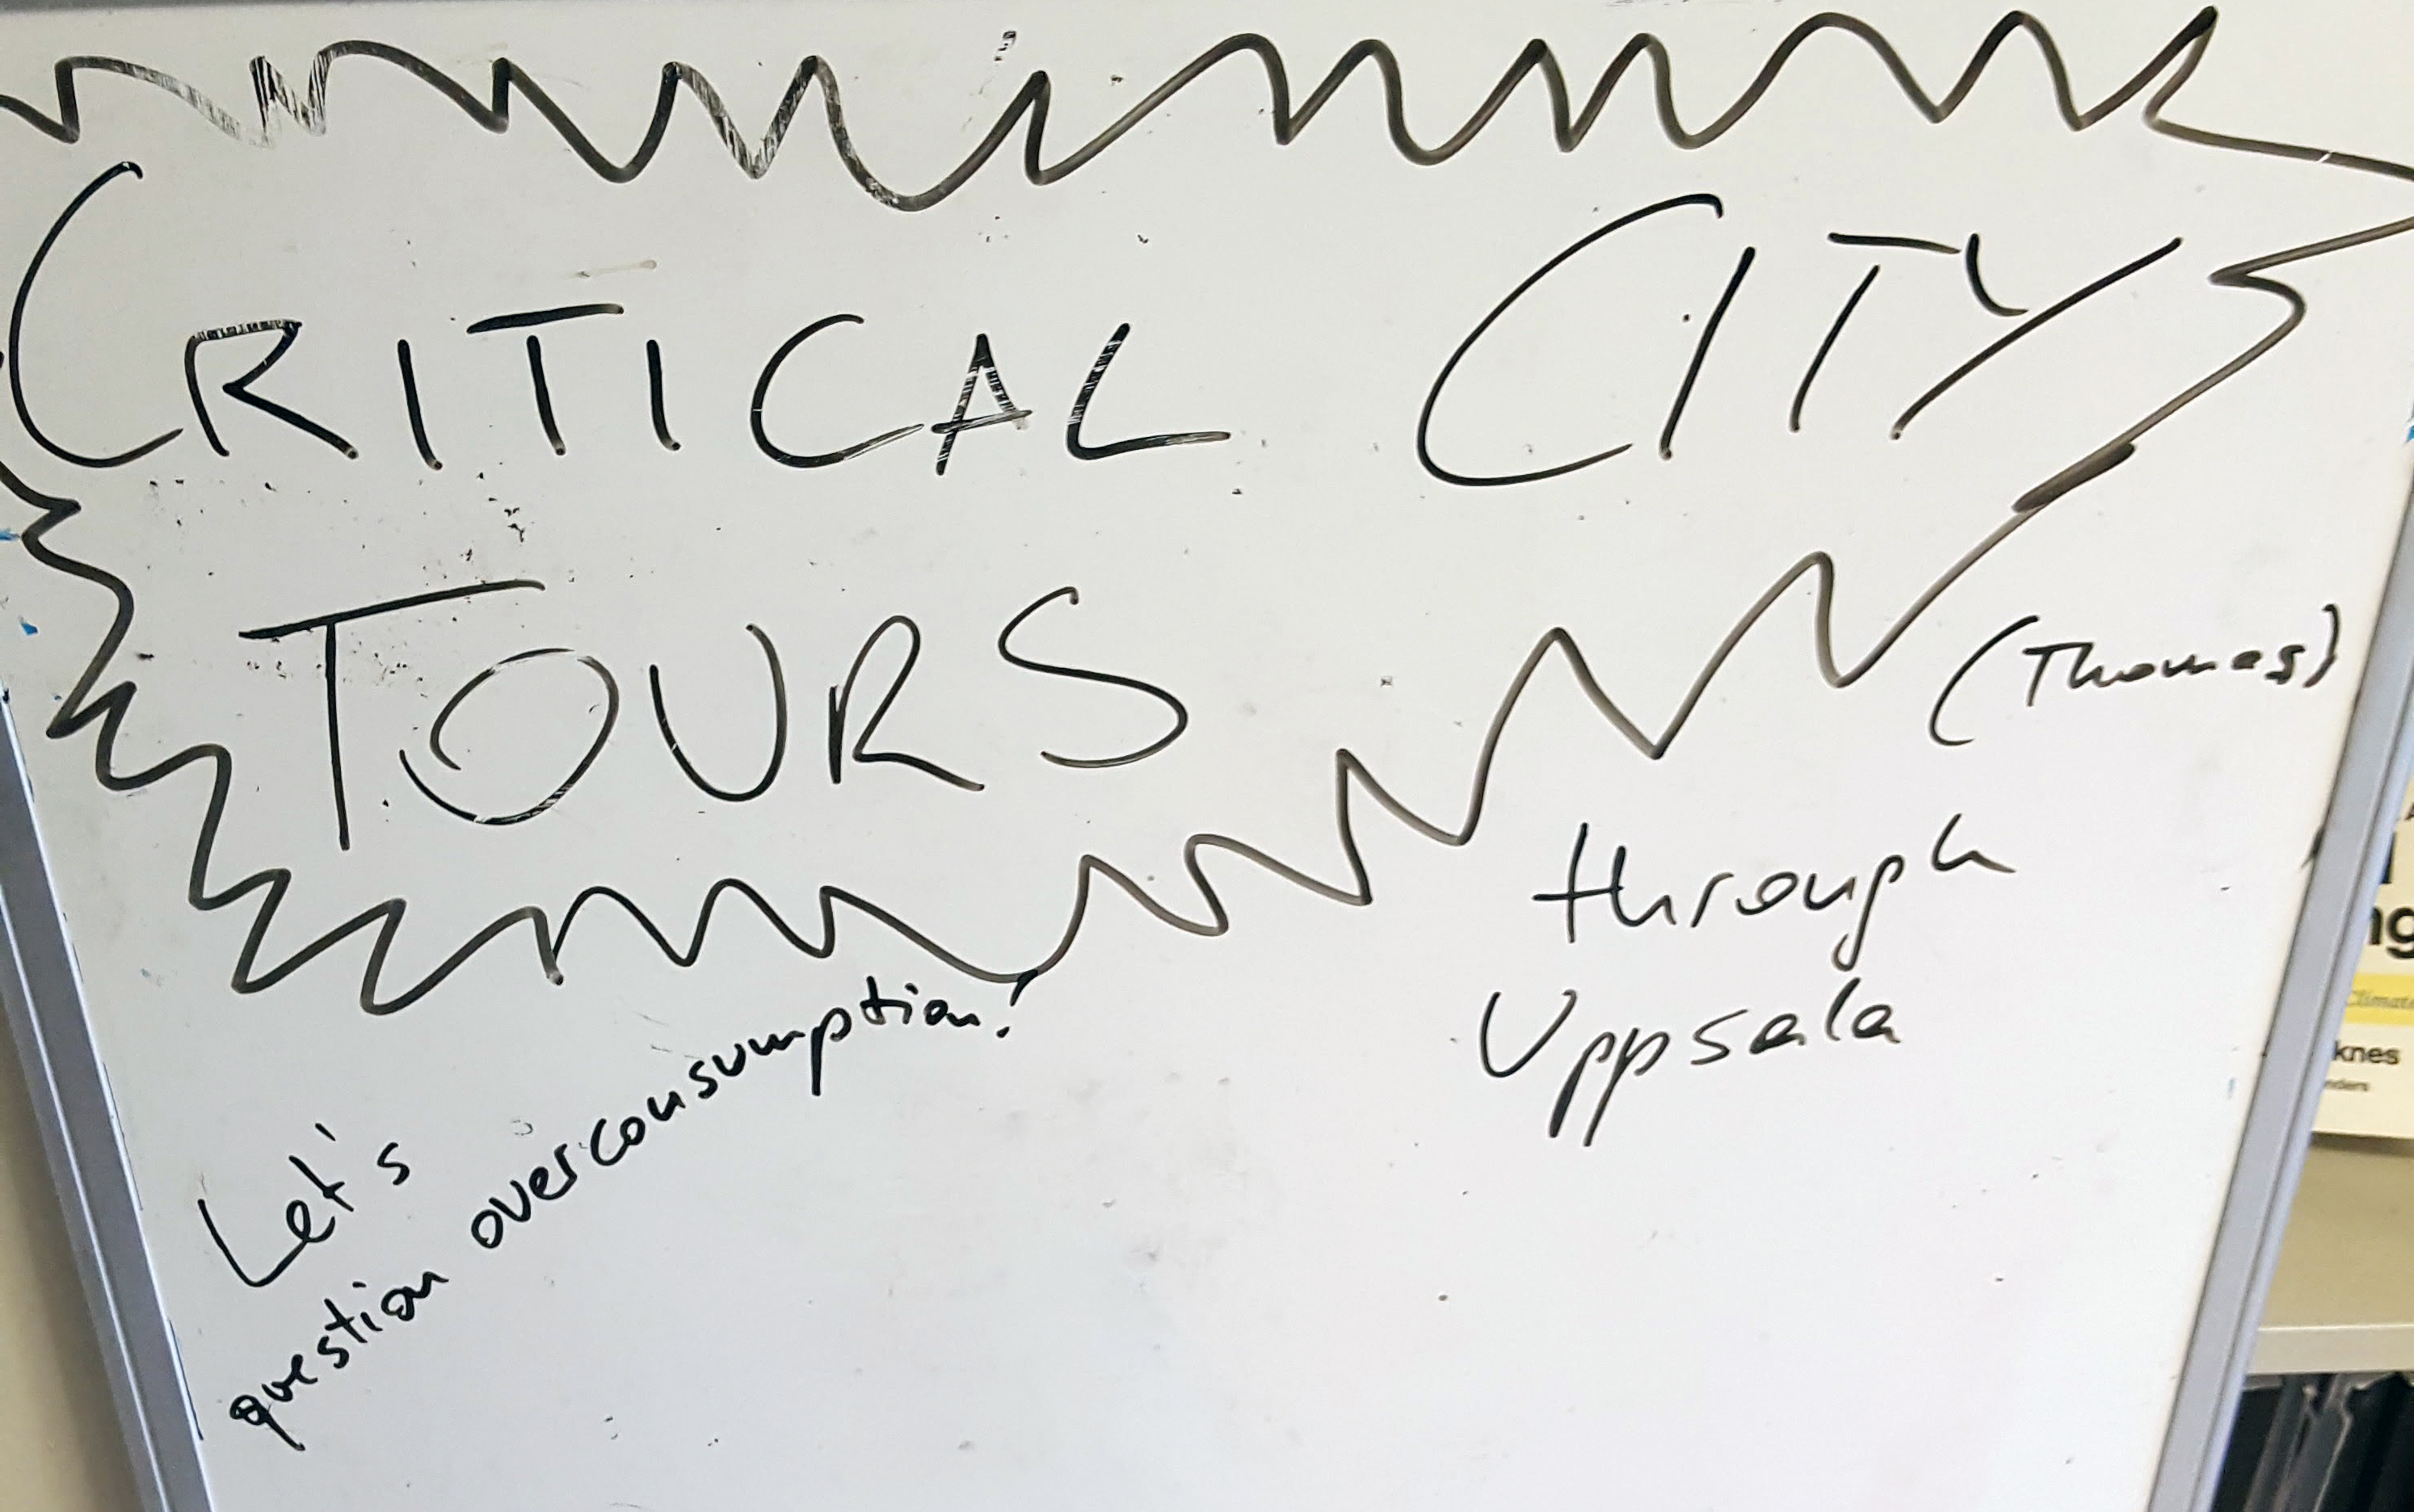 CRITICAL CITY
TOURS
(Thomas)
through
Uppsala
Let's
question overconsumption!
ng
Climate
knes
nders